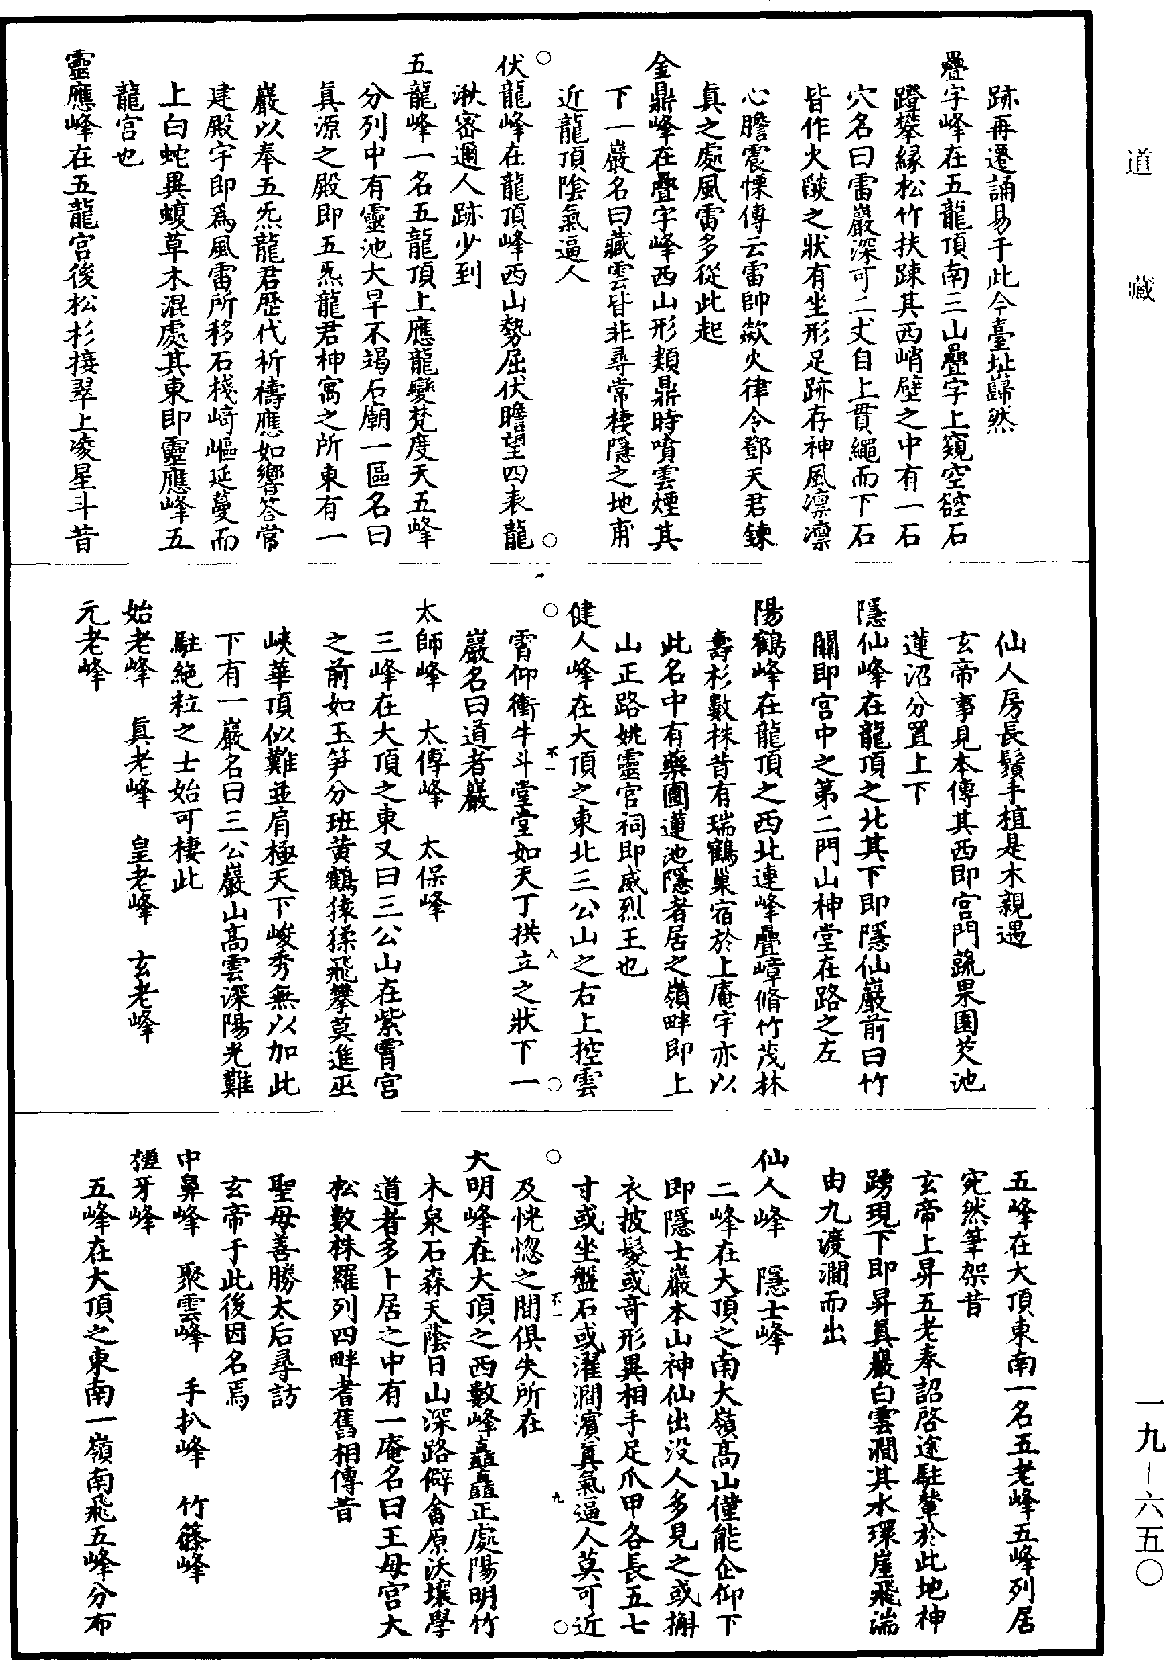 道藏
跡再遷誦易于此今臺址巋然
疊字峰在五龍頂南三山疊字上窺空硿石
蹬攀緣松竹扶踈其西峭壁之中有一石
穴名曰雷巖深可二丈自上貫繩而下石
皆作火燄之狀有坐形足跡存神風凛凛
心膽震慄傳云雷帥歘火律令鄧天君鍊
真之處風雷多從此起
金鼎峰在疊字峰西山形類鼎時噴雲煙其
下一巖名曰藏雲皆非尋常棲隱之地甫
近龍頂陰氣逼人
伏龍峰在龍頂峰西山勢屈伏瞻望四表龍
湫密邇人跡少到
五龍峰一名五龍頂上應龍變梵度天五峰
分列中有靈池大旱不竭石廟一區名曰
真源之殿即五炁龍君神寓之所東有一
巖以奉五炁龍君歷代祈禱應如響答常
建殿宇即為風雷所移石棧崎嶇延蔓而
上白蛇異蝮草木混處其東即靈應峰五
龍宫也
靈應峰在五龍宫後松杉接翠上凌星斗昔
仙人房長鬚手植是木親遇
玄帝事見本傳其西即宫門蔬果園芡池
蓮沼分置上下
隱仙峰在龍頂之北其下即隱仙巖前曰竹
關即宫中之第二門山神堂在路之左
陽鶴峰在龍頂之西北連峰疊嶂脩竹茂林
壽杉數株昔有瑞鶴巢宿於上庵宇亦以
此名中有藥圃蓮池隱者居之嶺畔即上
山正路姚靈官祠即威烈王也
健人峰在大頂之東北三公山之右上控雲
霄仰衝牛斗堂堂如天丁拱立之狀下一
巖名曰道者巖
太師峰　太傅峰　太保峰
三峰在大頂之東又曰三公山在紫霄宫
之前如玉笋分班黄鶴猿猱飛攀莫進巫
峽華頂似難並肩極天下峻秀無以加此
下有一巖名曰三公巖山高雲深陽光難
駐絶粒之士始可棲此
始老峰　真老峰　皇老峰　玄老峰
元老峰
五峰在大頂東南一名五老峰五峰列居
宛然筆架昔
玄帝上昇五老奉詔啓途駐輦於此地神
踴現下即昇真巖白雲澗其水環崖飛湍
由九渡澗而出
仙人峰　隱士峰
二峰在大頂之南大嶺高山僅能企仰下
即隱士巖本山神仙出没人多見之或槲
衣披髮或奇形異相手足爪甲各長五七
寸或坐盤石或濯澗濱真氣逼人莫可近
及恍惚之間俱失所在
大明峰在大頂之西數峰矗矗正處陽明竹
木泉石森天蔭日山深路僻畬原沃壤學
道者多卜居之中有一庵名曰王母宫大
松數株羅列四畔耆舊相傳昔
聖母善勝太后尋訪
玄帝于此後因名焉
中鼻峰　聚雲峰　手扒峰　竹篠峰
槎牙峰
五峰在大頂之東南一嶺南飛五峰分布
不一　八
不一　九
一九－六五〇